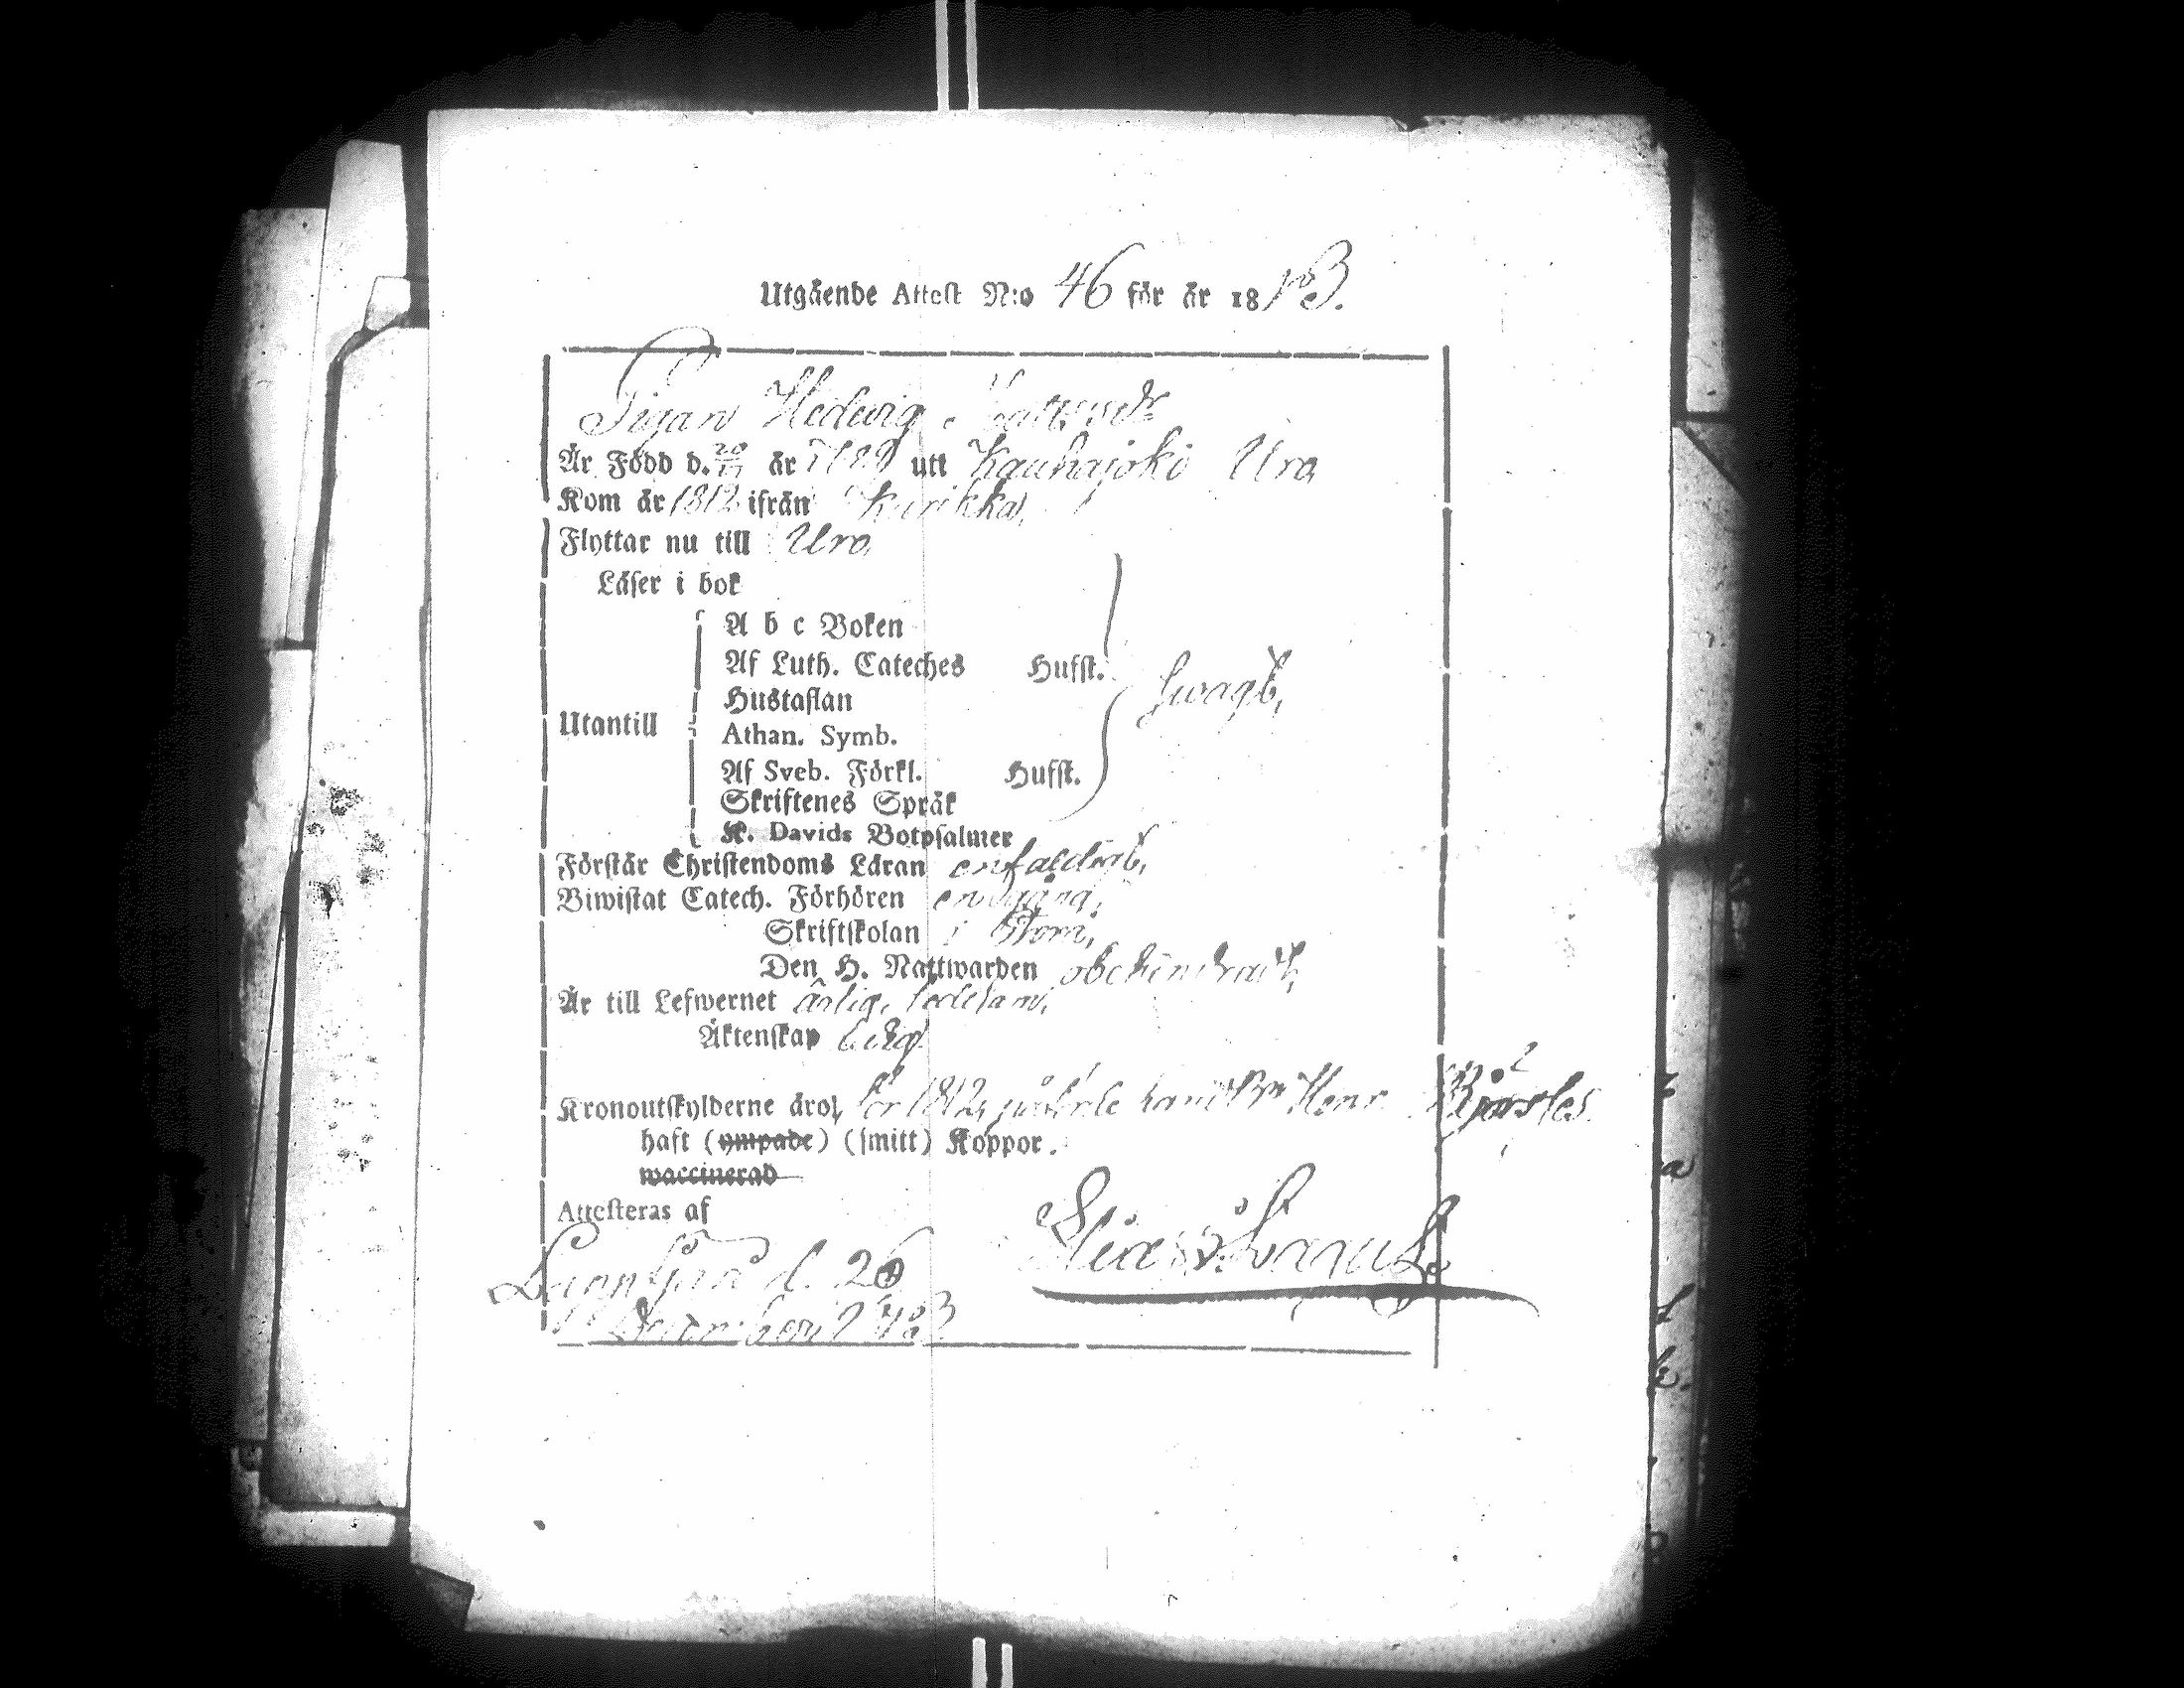 Utgående Attest N:o 46 för år 1813.
Pigan Hedwig Mattsdr
Är Född d. 20/11 år 1789 utt Kauhajoki Uro
Kom år 1812 ifrån Kurikka,
Flyttar nu till Uro,
Läser i bok
A b c Boken
Af Luth. Cateches Hufst.
Hustaflan
Utantill
Athan. Symb.
swagt,
Af Sveb. Förkl. Hufst.
Skriftenes Språk
K. Davids Botpsalmer
Förstår Christendoms Läran enfaldigt,
Biwistat Catech. Förhören en gång,
Skriftskolan i Storå,
Den H. Nattwarden obehindradt,
Är till Lefwernet ärlig, sedesam,
Äktenskap ledig
Kronoutskylderne äro för 1812 påförde Henr. Björles
haft (ympade) (smitt) Koppor.
waccinerad
Attesteras af
Lappfjärd d. 26
December 1813